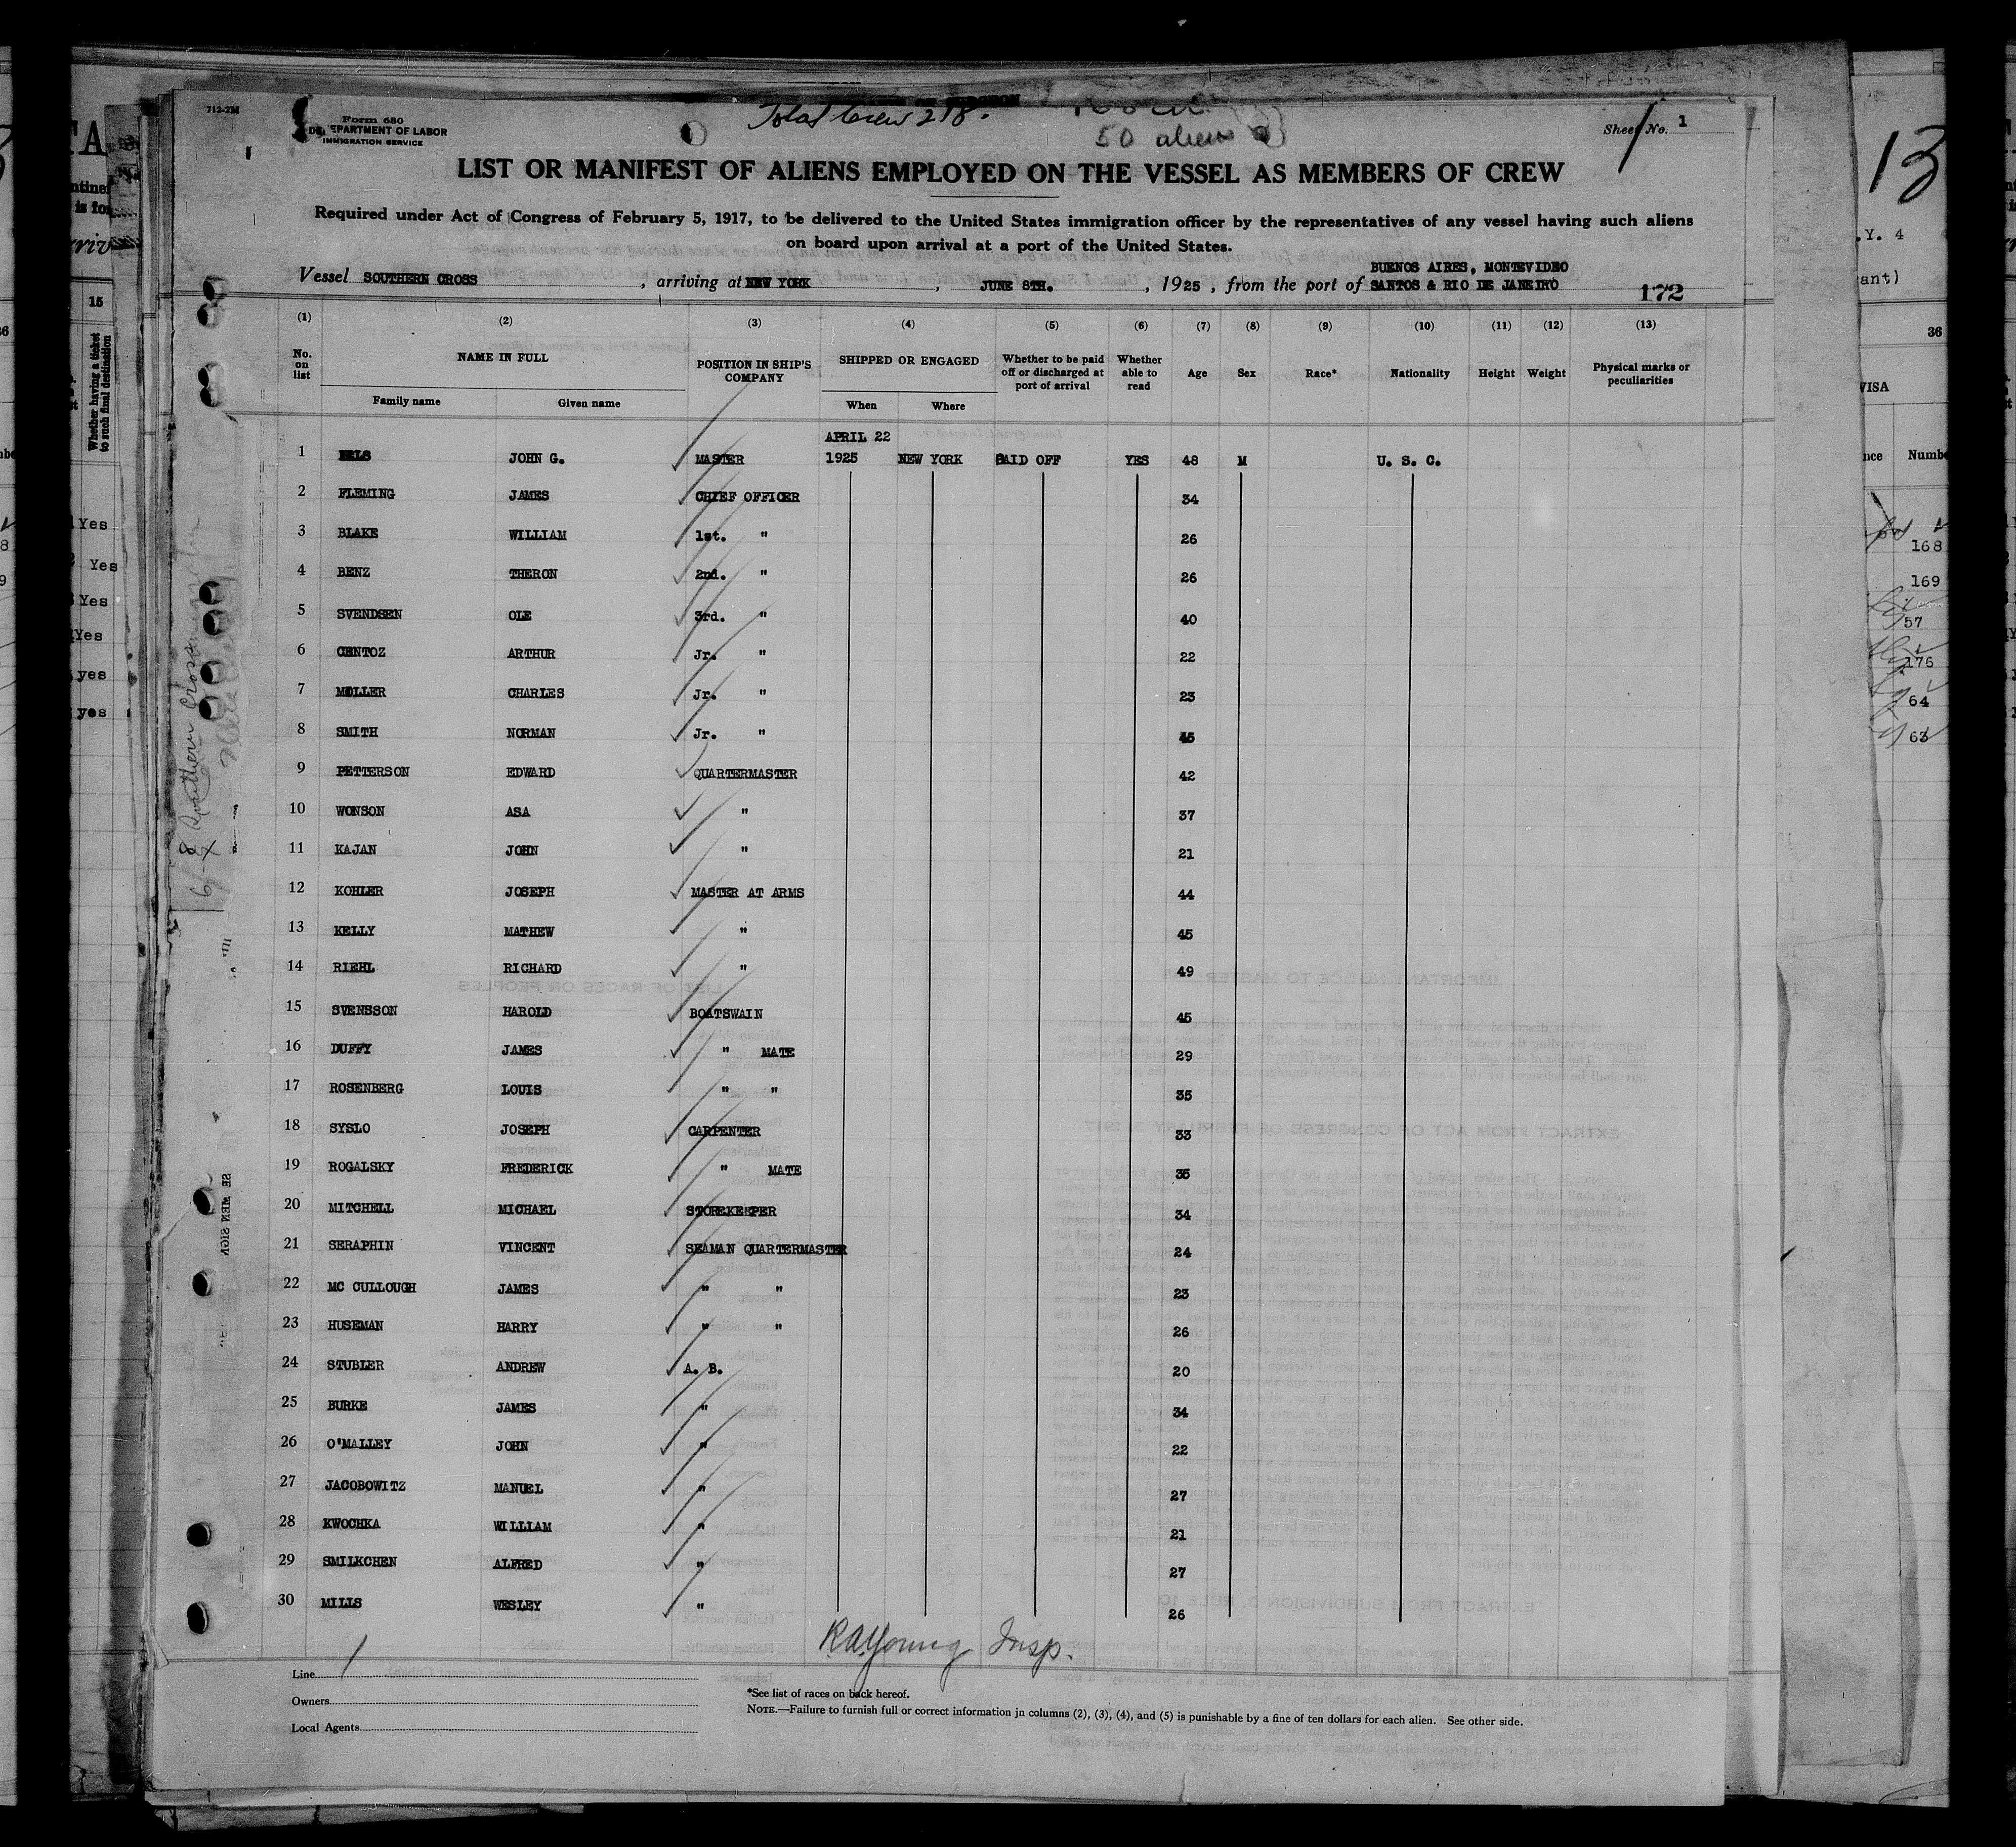 712-2M
Form 680
DEPARTMENT OF LABOR
IMMIGRATION SERVICE
Total Crew 218.
50 aliens
Sheet No. 1
LIST OR MANIFEST OF ALIENS EMPLOYED ON THE VESSEL AS MEMBERS OF CREW
Required under Act of Congress of February 5, 1917, to be delivered to the United States immigration officer by the representatives of any vessel having such aliens
on board upon arrival at a port of the United States.
BUENOS AIRES, MONTEVIDEO
Vessel SOUTHERN CROSS, arriving at NEW YORK, JUNE 8TH., 1925, from the port of SANTOS & RIO DE JANEIRO
172
(1) (2) (3) (4) (5) (6) (7) (8) (9) (10) (11) (12) (13)
No. on list NAME IN FULL POSITION IN SHIP'S COMPANY SHIPPED OR ENGAGED Whether to be paid off or discharged at port of arrival Whether able to read Age Sex Race* Nationality Height Weight Physical marks or peculiarities
Family name Given name When Where
APRIL 22
1 JOHN G. MASTER 1925 NEW YORK PAID OFF YES 48 M U. S. C.
2 FLEMING JAMES CHIEF OFFICER 34
3 BLAKE WILLIAM 1st. " 26
4 BENZ THERON 2nd. " 26
5 SVENDSEN OLE 3rd. " 40
6 CENTOZ ARTHUR Jr. " 22
7 MOLLER CHARLES Jr. " 23
8 SMITH NORMAN Jr. "
9 PETTERSON EDWARD QUARTERMASTER 42
10 WONSON ASA " 37
11 KAJAN JOHN " 21
12 KOHLER JOSEPH MASTER AT ARMS 44
13 KELLY MATHEW " 45
14 RIEHL RICHARD " 49
15 SVENSSON HAROLD BOATSWAIN 45
16 DUFFY JAMES " MATE 29
17 ROSENBERG LOUIS " " 35
18 SYSLO JOSEPH CARPENTER 33
19 ROGALSKY FREDERICK " MATE 35
20 MITCHELL MICHAEL STOREKEEPER 34
21 SERAPHIN VINCENT SEAMAN QUARTERMASTER 24
22 MC CULLOUGH JAMES " " 23
23 HUSEMAN HARRY " " 26
24 STUBLER ANDREW A. B. 20
25 BURKE JAMES " 34
26 O'MALLEY JOHN " 22
27 JACOBOWITZ MANUEL " 27
28 KWOCHKA WILLIAM " 21
29 SMILKCHEN ALFRED " 27
30 MILLS WESLEY " 26
R A Young Insp.
Line
Owners
Local Agents
*See list of races on back hereof.
NOTE.—Failure to furnish full or correct information in columns (2), (3), (4), and (5) is punishable by a fine of ten dollars for each alien. See other side.
15
Whether having a ticket
to such final destination
Yes
Yes
Yes
Yes
yes
yes
Southern Cross
13
36
168
169
57
176
64
63